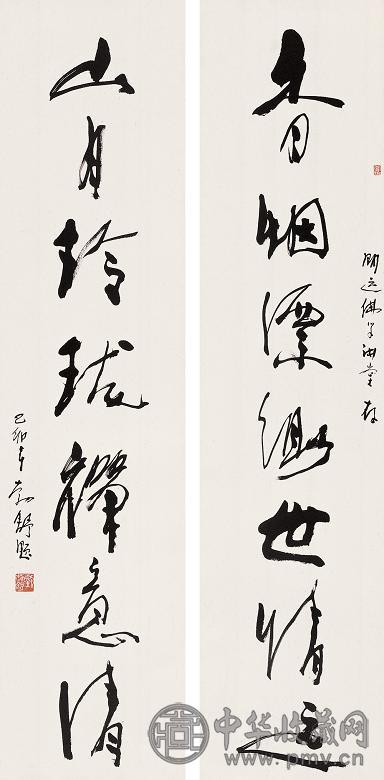 香烟漂緲世情远
山月玲珑禪意清
己卯年
中华收藏网
www.pmy.cn